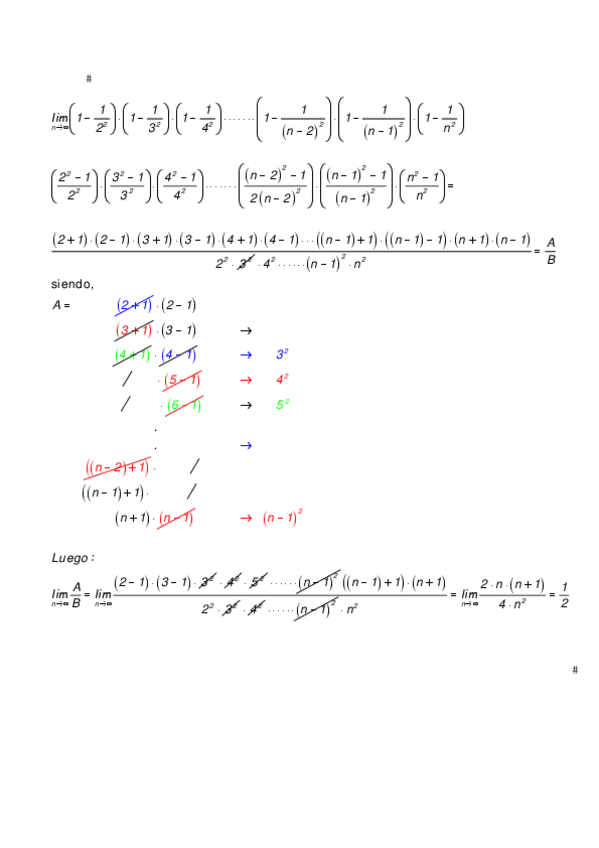 #
lim n→∞ (1 − 1/2²) · (1 − 1/3²) · (1 − 1/4²) · · · · · · · (1 − 1/(n − 2)²) · (1 − 1/(n − 1)²) · (1 − 1/n²)
((2² − 1)/2²) · ((3² − 1)/3²) · ((4² − 1)/4²) · · · · · · · (((n − 2)² − 1)/(2(n − 2)²)) · (((n − 1)² − 1)/(n − 1)²) · ((n² − 1)/n²) =
((2 + 1) · (2 − 1) · (3 + 1) · (3 − 1) · (4 + 1) · (4 − 1) · · · ((n − 1) + 1) · ((n − 1) − 1) · (n + 1) · (n − 1))/(2² · 3² · 4² · · · · · · (n − 1)² · n²) = A/B
siendo,
A = (2 + 1) · (2 − 1)
(3 + 1) · (3 − 1) →
(4 + 1) · (4 − 1) → 3²
/ · (5 − 1) → 4²
/ · (6 − 1) → 5²
.
. →
((n − 2) + 1) · /
((n − 1) + 1) · /
(n + 1) · (n − 1) → (n − 1)²
Luego :
lim n→∞ A/B = lim n→∞ ((2 − 1) · (3 − 1) · 3² · 4² · 5² · · · · · · (n − 1)² ((n − 1) + 1) · (n + 1))/(2² · 3² · 4² · · · · · · (n − 1)² · n²) = lim n→∞ (2 · n · (n + 1))/(4 · n²) = 1/2
#